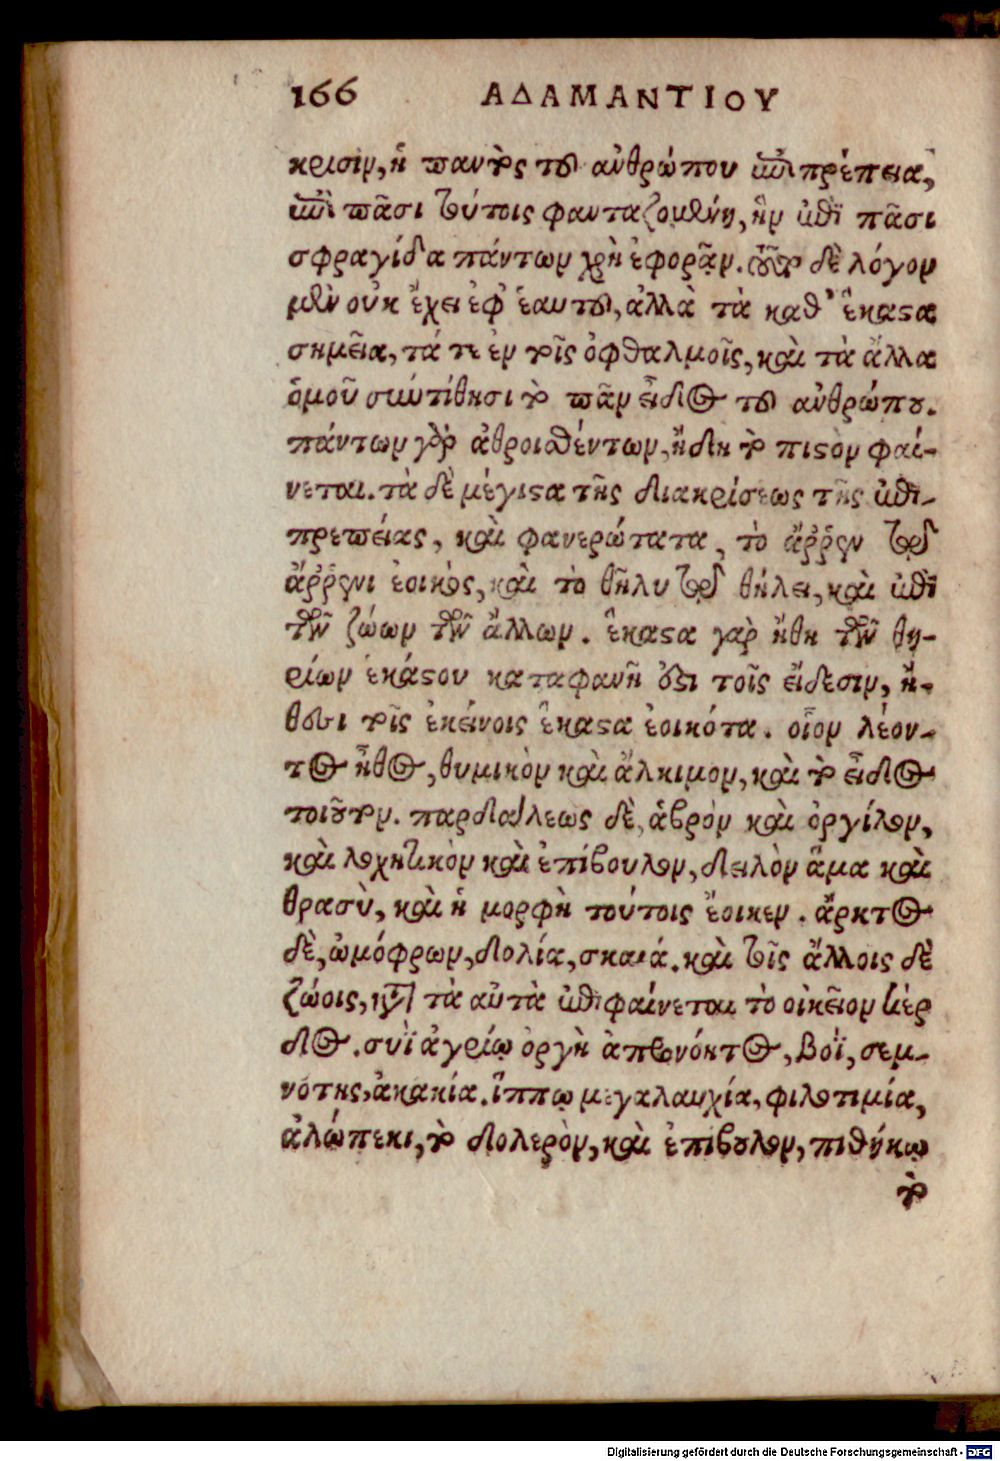 166 ΑΔΑΜΑΝΤΙΟΥ
κρισιν, ἡ παντὸς τοῦ ἀνθρώπου ἐπιπρέπεια,
ἐπὶ πᾶσι τούτοις φανταζομένη, ἣν ἐπὶ πᾶσι
σφραγίδα πάντων χρὴ ἐφορᾷν. αὕτη δὲ λόγον
μὲν οὐκ ἔχει ἐφ' ἑαυτοῦ, ἀλλὰ τὰ καθ' ἕκαστα
σημεῖα, τά τε ἐν τοῖς ὀφθαλμοῖς, καὶ τὰ ἄλλα
ὁμοῦ συντίθησι τὸ πᾶν εἶδος τοῦ ἀνθρώπου.
πάντων γὰρ ἀθροισθέντων, ἤδη τὸ πιστὸν φαί-
νεται. τὰ δὲ μέγιστα τῆς διακρίσεως τῆς ἐπι-
πρεπείας, καὶ φανερώτατα, τὸ ἄῤῥεν τῷ
ἄῤῥενι ἐοικὸς, καὶ τὸ θῆλυ τῷ θήλει, καὶ ἐπὶ
τῶν ζώων τῶν ἄλλων. ἕκαστα γὰρ ἤθη τῶν θη-
ρίων ἑκάστου καταφανῆ ἐστι τοῖς εἴδεσιν, ἤ-
θεσι τοῖς ἐκείνοις ἕκαστα ἐοικότα. οἷον λέον-
τος ἦθος, θυμικὸν καὶ ἄλκιμον, καὶ τὸ εἶδος
τοιοῦτον. παρδάλεως δὲ, ἁβρὸν καὶ ὀργίλον,
καὶ λοχητικὸν καὶ ἐπίβουλον, δειλὸν ἅμα καὶ
θρασὺ, καὶ ἡ μορφὴ τούτοις ἔοικεν. ἄρκτος
δὲ, ὠμόφρων, δολία, σκαιά. καὶ τοῖς ἄλλοις δὲ
ζώοις, κατὰ τὰ αὐτὰ ἐπιφαίνεται τὸ οἰκεῖον εἶ
δος. συῒ ἀγρίῳ ὀργὴ ἀπρονόητος, βοῒ, σεμ-
νότης, ἀκακία. ἵππῳ μεγαλαυχία, φιλοτιμία,
ἀλώπεκι, τὸ δολερὸν, καὶ ἐπίβουλον, πιθήκῳ
τὸ
Digitalisierung gefördert durch die Deutsche Forschungsgemeinschaft - DFG